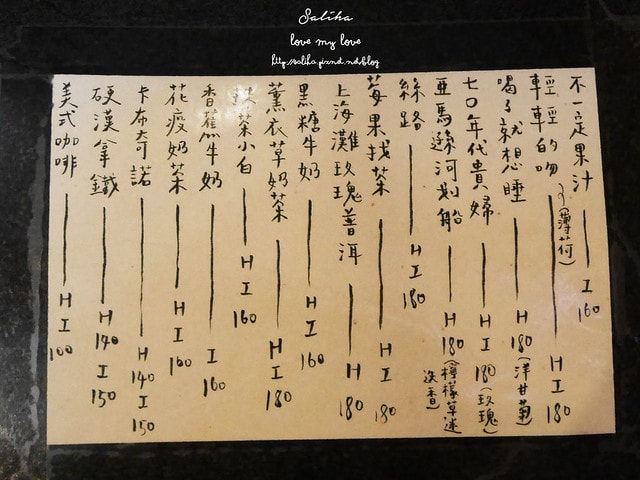 Saliha
love my love
http://saliha.pixnet.net/blog
不一定果汁 I 160
輕輕的吻 (薄荷) H I 180
喝了就想睡 H 180 (洋甘菊)
七〇年代貴婦 H I 180 (玫瑰)
亞馬遜河划船 H 180 (檸檬草迷迭香)
絲路 H I 180
莓果找茶 H I 180
上海灘玫瑰普洱 H 180
黑糖牛奶 H I 160
薰衣草奶茶 H I 180
抹茶小白 H I 160
香蕉牛奶 I 160
花疫奶茶 H I 160
卡布奇諾 H 140 I 150
硬漢拿鐵 H 140 I 150
美式咖啡 H I 100